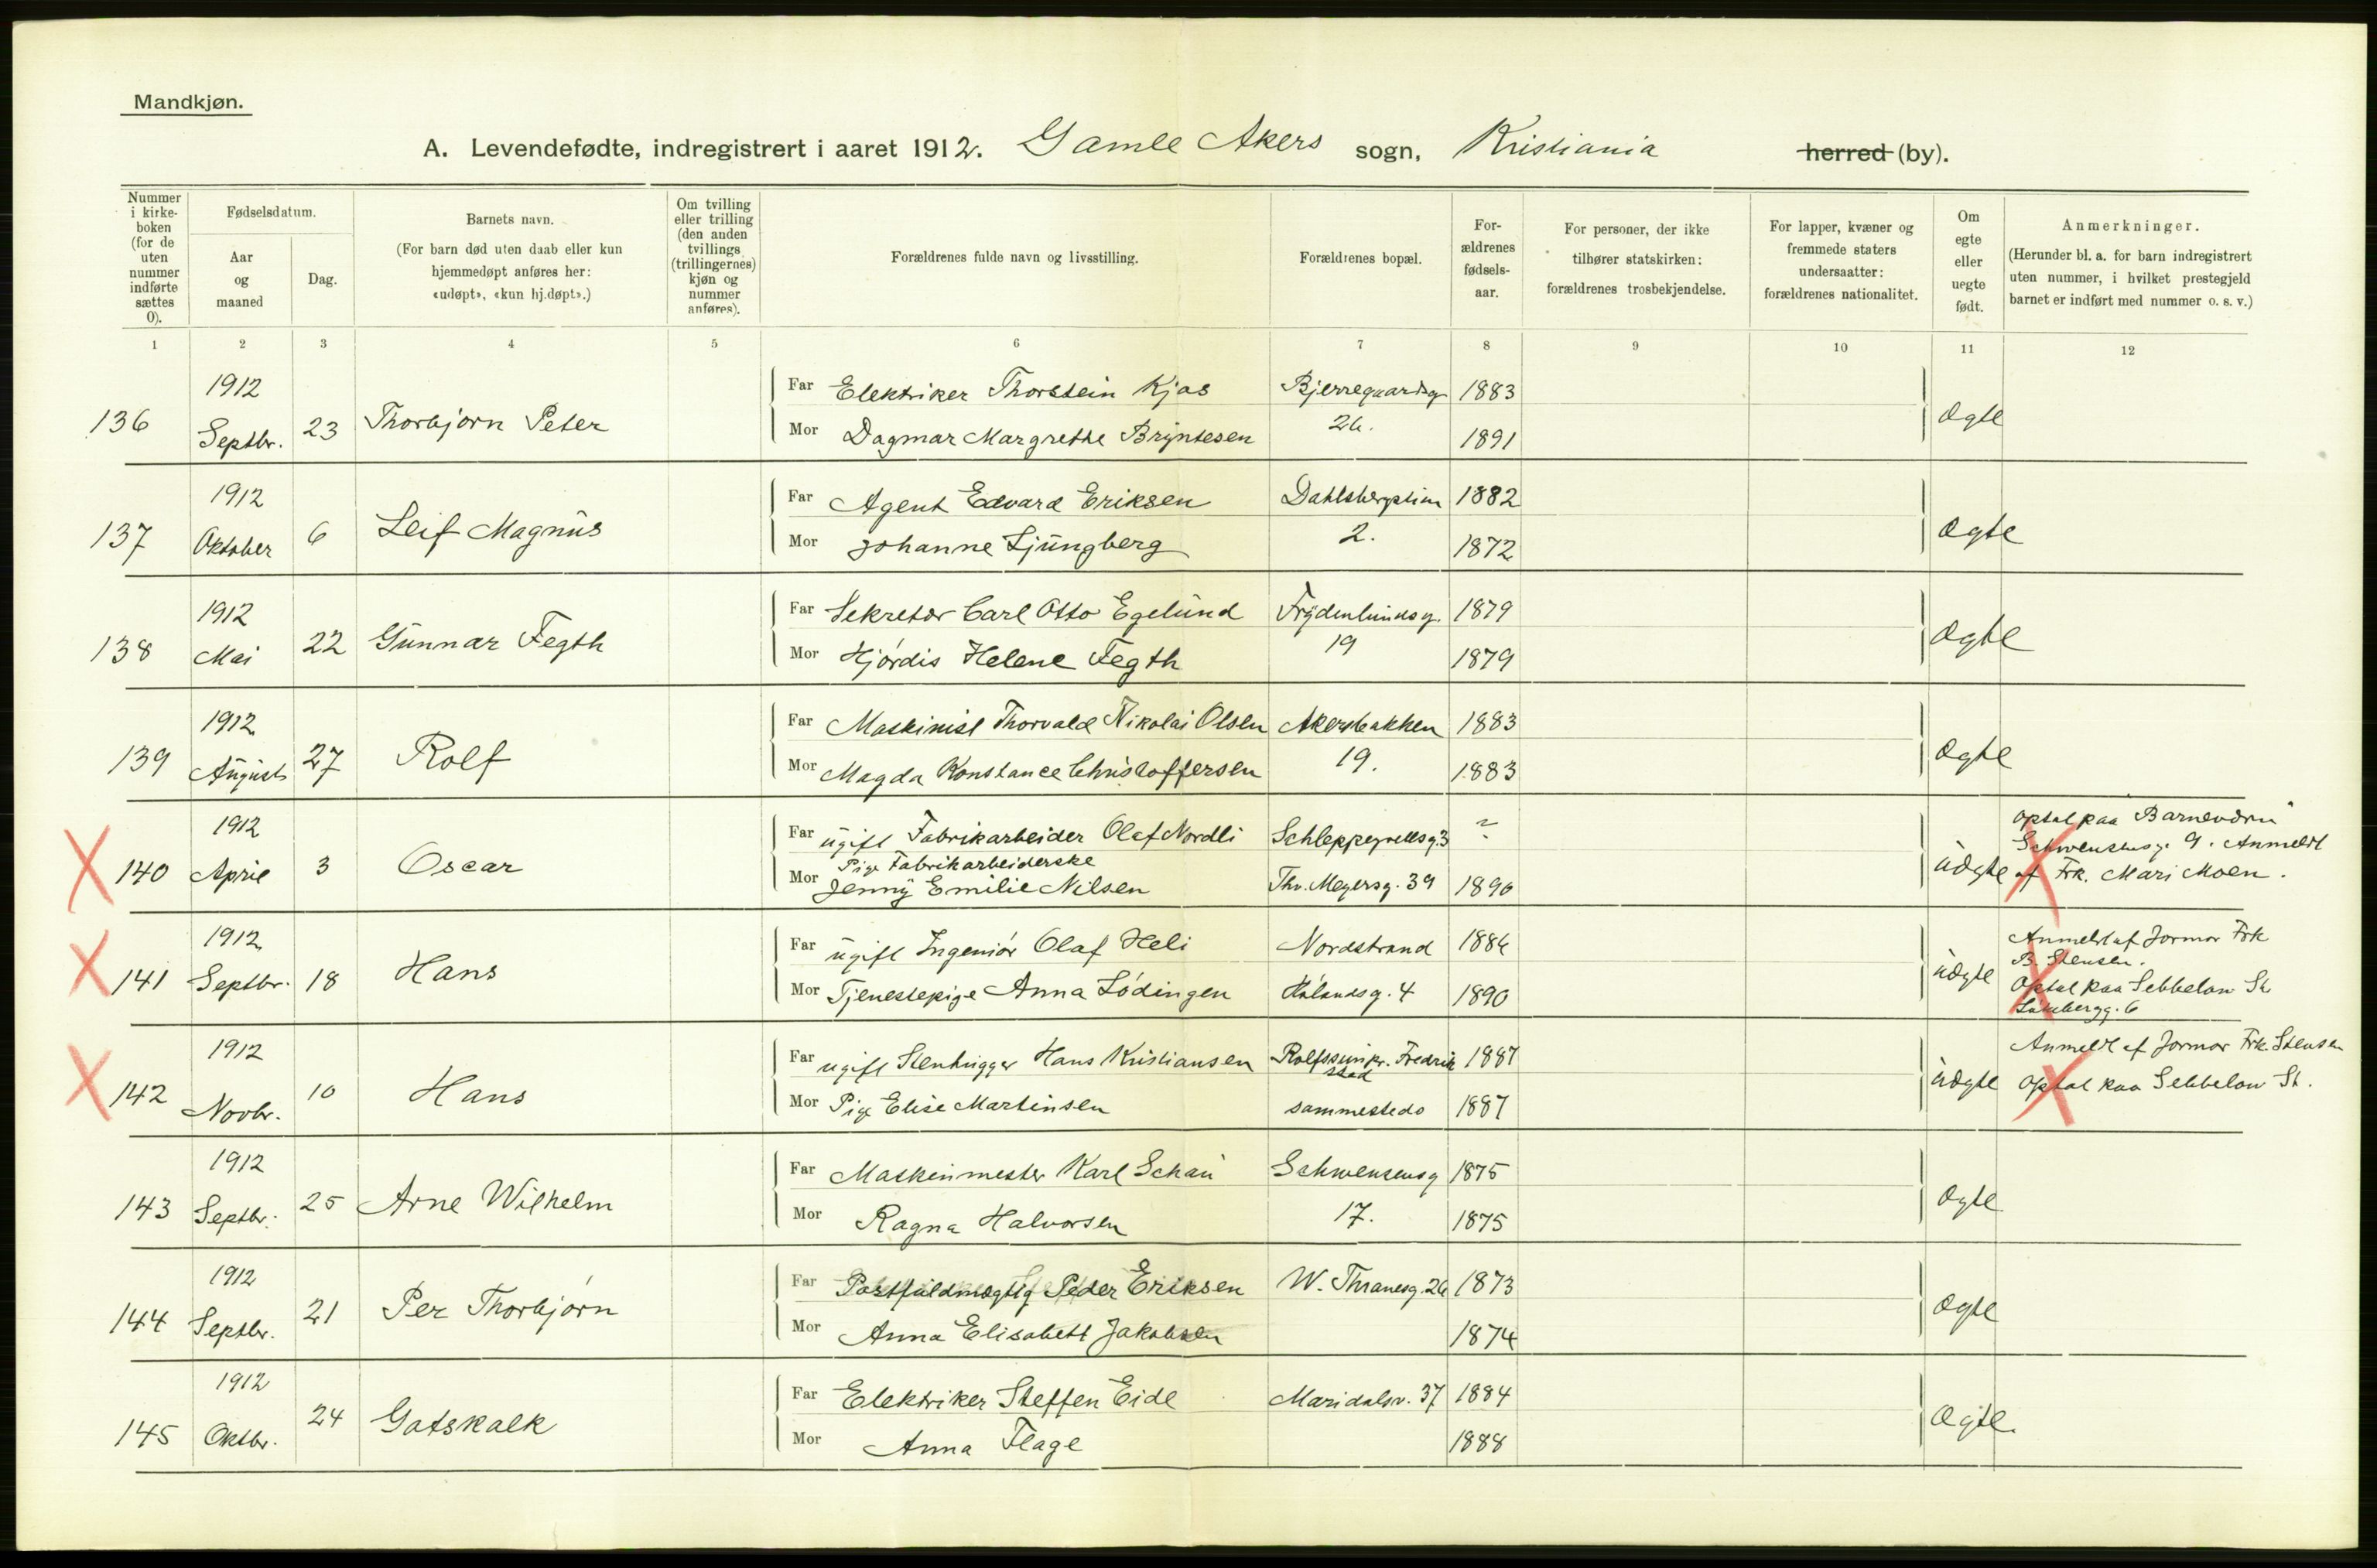 Mandkjøn.
A. Levendefødte, indregistrert i aaret 1912. Gamle Akers sogn, Kristiania herred (by).
Nummer i kirke-boken (for de uten nummer indførte sættes 0).
Fødselsdatum.
Aar og maaned
Dag.
Barnets navn.
(For barn død uten daab eller kun hjemmedøpt anføres her: «udøpt», «kun hj.døpt».)
Om tvilling eller trilling (den anden tvillings (trillingernes) kjøn og nummer anføres).
Forældrenes fulde navn og livsstilling.
Forældrenes bopæl.
For-ældrenes fødsels-aar.
For personer, der ikke tilhører statskirken: forældrenes trosbekjendelse.
For lapper, kvæner og fremmede staters undersaatter: forældrenes nationalitet.
Om egte eller uegte født.
Anmerkninger.
(Herunder bl. a. for barn indregistrert uten nummer, i hvilket prestegjeld barnet er indført med nummer o. s. v.)
1 2 3 4 5 6 7 8 9 10 11 12
1912 Far Elektriker Thorstein Kjos Bjerregaardsg 1883
136 Septbr. 23 Thorbjørn Peter Mor Dagmar Margrethe Bryntesen 26. 1891 Ægte
1912 Far Agent Edvard Eriksen 1882
137 Oktober 6 Leif Magnus Mor Johanne Ljungberg 2. 1872 Ægte
1912 Far Sekretær Carl Otto Egelund Frydenlundsg. 1879
138 Mai 22 Gunnar Fegth Mor Hjørdis Helene Fegth 19 1879 Ægte
1912 Far Maskinist Thorvald Nikolai Olsen Akersbakken 1883
139 August 27 Rolf Mor Magda Konstance Christoffersen 19. 1883 Ægte
1912 Far ugift Fabrikarbeider Olaf Nordli Schleppegrellsg. 3 ?
140 April 3 Oscar Mor Pige Fabrikarbeiderske
Jenny Emilie Nilsen Thv. Meyersg. 39 1890 uægte
optal paa
Schwensensg. 9. Anmeldt
af Frk. Mari Moen.
1912 Far ugift Ingeniør Olaf Heli Nordstrand 1886
141 Septbr. 18 Hans Mor Tjenestepige Anna Lødingen 4 1890 uægte
Anmeldt af Jormor Frk
B. Stensen.
Optal paa Sebbelow St
6
1912 Far ugift Stenhugger Hans Kristiansen Rolfssunpr. Fredrik
stad 1887
142 Novbr. 10 Hans Mor Pige Elise Martinsen sammesteds 1887 uægte
Anmeldt af Jormor Frk. Stensen
optal paa Sebbelow St.
1912 Far Maskinmester Karl Schau Schwensensg 1875
143 Septbr. 25 Arne Wilhelm Mor Ragna Halvorsen 17. 1875 Ægte
1912 Far Postfuldmægtig Peder Eriksen W. Thranesg. 26 1873
144 Septbr. 21 Per Thorbjørn Mor Anna Elisabeth Jakobsen 1874 Ægte
1912 Far Elektriker Steffen Eide Maridalsv. 37 1884
145 Oktbr. 24 Gotskalk Mor Anna Flage 1888 Ægte.